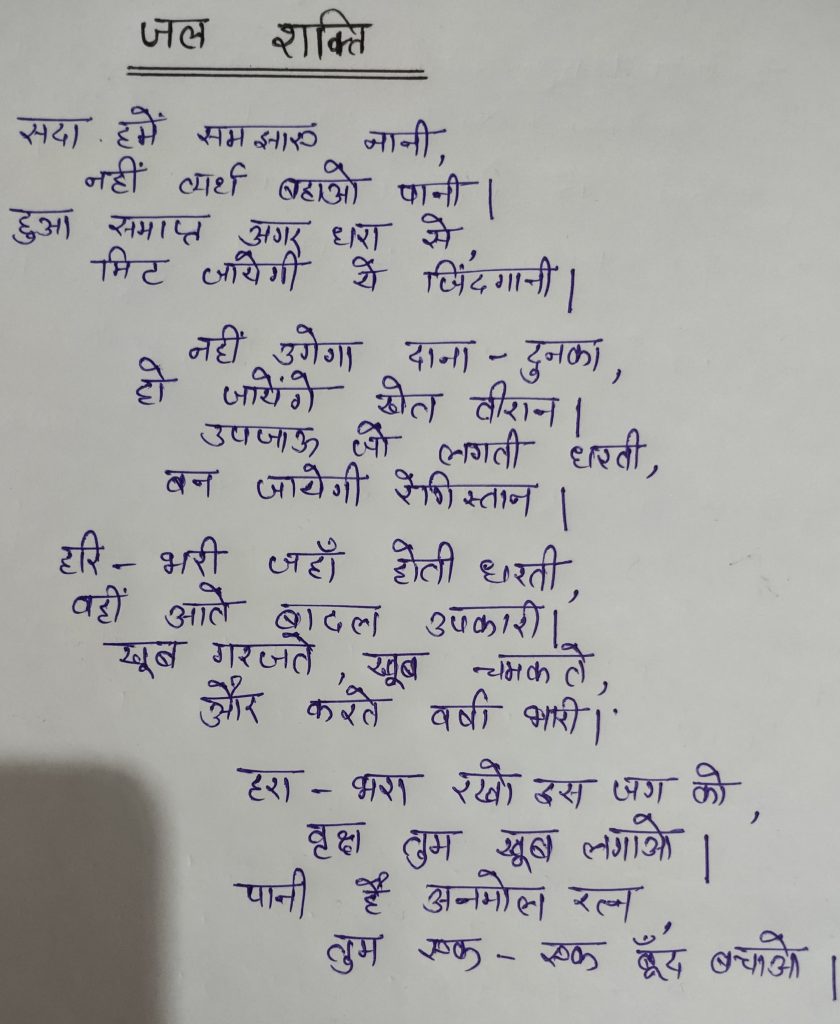 जल शक्ति
सदा हमें समझाए नानी,
नहीं व्यर्थ बहाओ पानी।
हुआ समाप्त अगर धरा से,
मिट जायेगी ये जिंदगानी।
नहीं उगेगा दाना - दुनका,
हो जायेंगे खेत वीरान।
उपजाऊ जो लगती धरती,
बन जायेगी रेगिस्तान।
हरि - भरी जहाँ होती धरती,
वहीं आते बादल उपकारी।
खूब गरजते, खूब चमकते,
और करते वर्षा भारी।
हरा - भरा रखो इस जग को,
वृक्ष तुम खूब लगाओ।
पानी है अनमोल रत्न,
तुम एक - एक बूँद बचाओ।